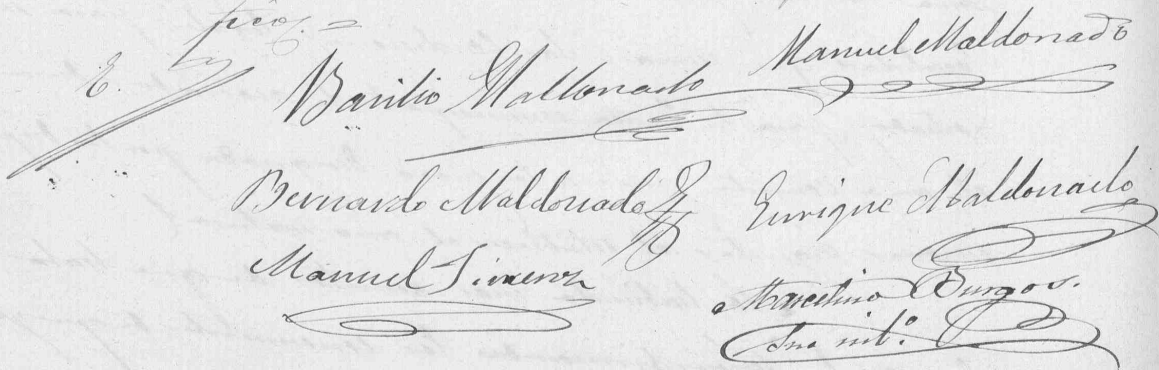 E.
Basilio Maldonado
Manuel Maldonado
Bernardo Maldonado
Enrique Maldonado
Manuel Simenz
Marcelino Burgos.